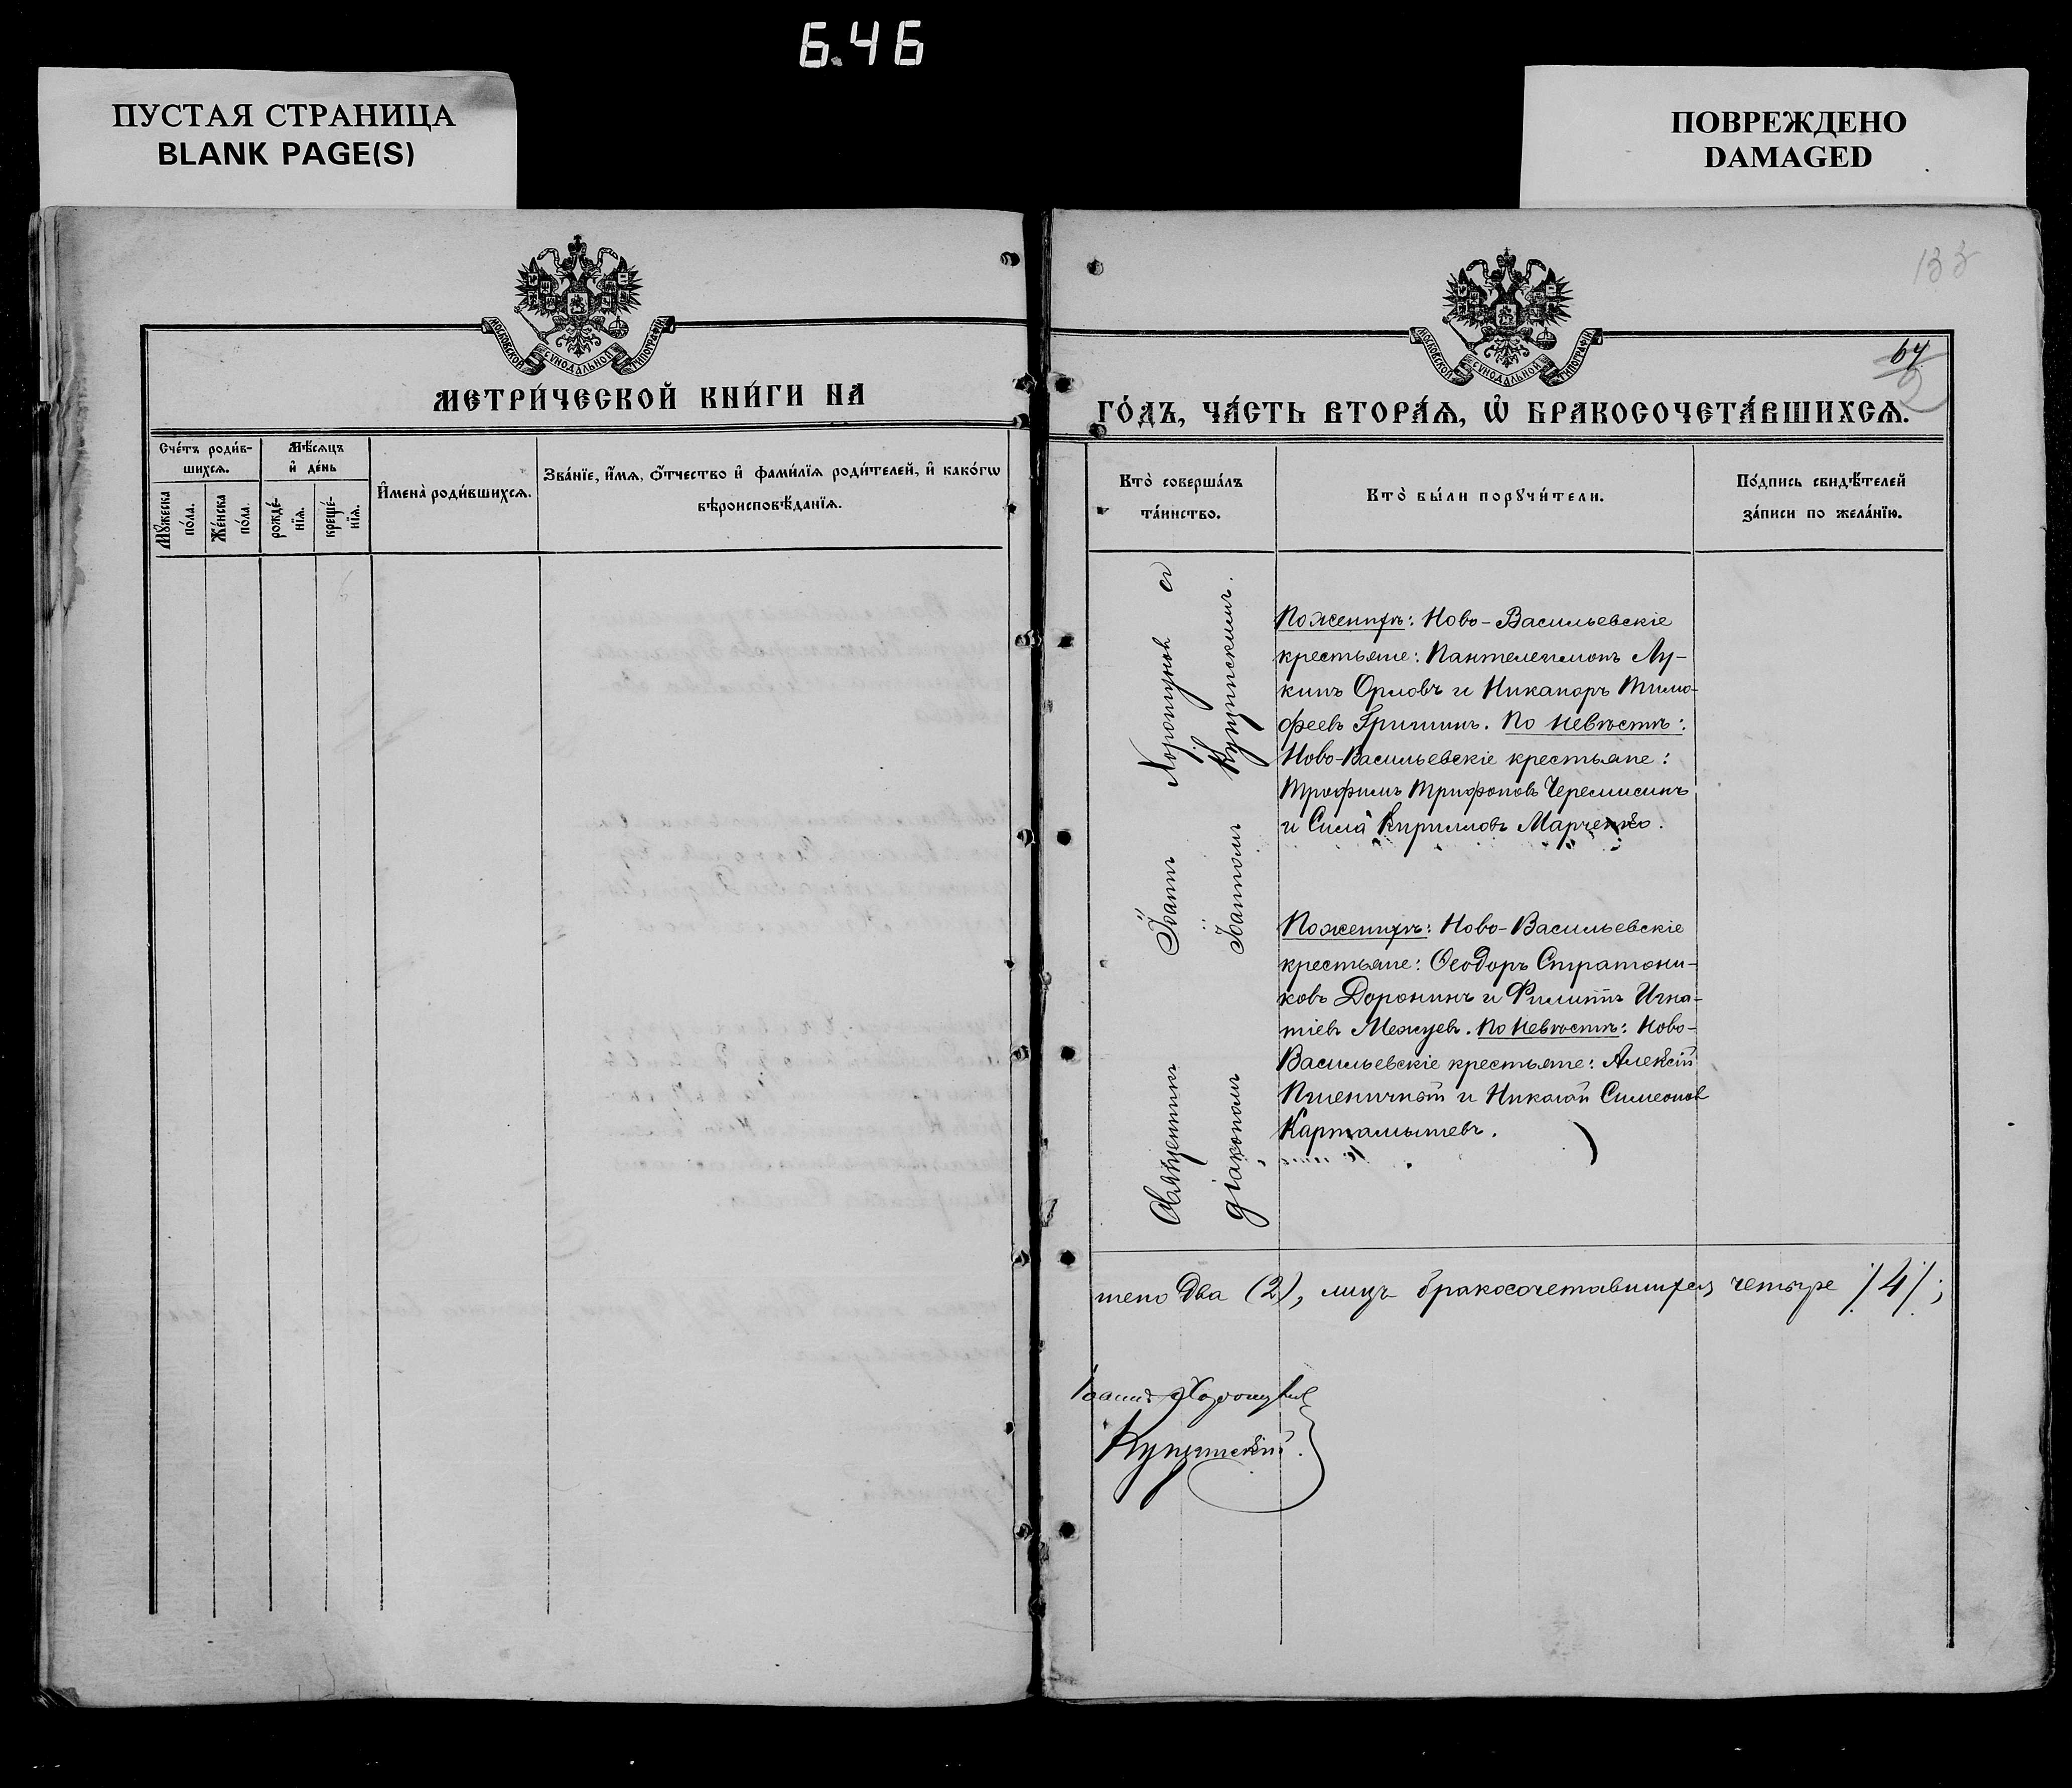 6.46
ПУСТАЯ СТРАНИЦА
BLANK PAGE(S)
ПОВРЕЖДЕНО
DAMAGED
МОСКОВСКОЙ СѴНОДАЛЬНОЙ ТИПОГРАФІИ
МЕТРИ́ЧЕСКОЙ КНИ́ГИ НА
Сче́тъ роди́в-
шихсѧ.
Мѣ́сѧцъ
и҆ де́нь
Мꙋ́жеска
по́ла.
Же́нска
по́ла.
рожде́-
нїѧ.
креще́-
нїѧ.
И҆мена̀ роди́вшихсѧ.
Зва́нїе, и҆́мѧ, ѻ҆́тчество и҆ фами́лїѧ роди́телей, и҆ како́гѡ
вѣроисповѣ́данїѧ.
133
МОСКОВСКОЙ СѴНОДАЛЬНОЙ ТИПОГРАФІИ
64
ГО́ДЪ, ЧА́СТЬ ВТОРА́Ѧ, Ѡ҆ БРАКОСОЧЕТА́ВШИХСѦ.
Кто̀ соверша́лъ
та́инство.
Кто̀ бы́ли порꙋчи́тели.
По́дпись свидѣ́телей
за́писи по жела́нїю.
Священникъ Іоаннъ Хорошуновъ съ
діакономъ Іоанномъ Купчинскимъ.
По женихѣ: Ново-Васильевскіе
крестьяне: Пантелеимонъ Лу-
кинъ Орловъ и Никаноръ Тимо-
феевъ Гришинъ. По невѣстѣ:
Ново-Васильевскіе крестьяне:
Трофимъ Трифоновъ Черемисинъ
и Сила Кирилловъ Марченко.
По женихѣ: Ново-Васильевскіе
крестьяне: Ѳеодоръ Стратони-
ковъ Доронинъ и Филиппъ Игна-
тіевъ Межуевъ. По невѣстѣ: Ново-
Васильевскіе крестьяне: Алексій
Пшеничный и Николай Симеоновъ
Картамышевъ.
тено два (2), лицъ бракосочетавшихся четыре /4/;
Іоаннъ Хорошуновъ
Купчинскій.